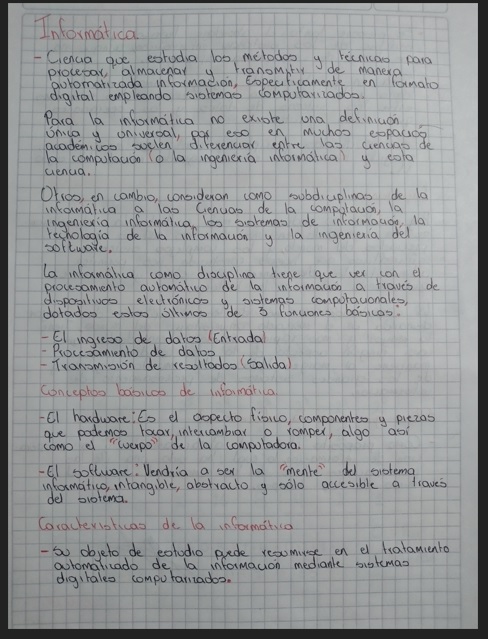 Informática
- Ciencia que estudia los métodos y técnicas para
procesar, almacenar y transmitir de manera
automatizada información, específicamente en formato
digital empleando sistemas computarizados.
Para la informática no existe una definición
única y universal, por eso en muchos espacios
académicos suelen diferenciar entre las ciencias de
la computación (o la ingeniería informática) y esta
ciencia.
Otros, en cambio, consideran como subdisciplinas de la
informática a las Ciencias de la computación, la
ingeniería informática, los sistemas de información, la
tecnología de la información y la ingeniería del
software.
La informática como disciplina tiene que ver con el
procesamiento automático de la información a través de
dispositivos electrónicos y sistemas computacionales,
dotados estos últimos de 3 funciones básicas:
- El ingreso de datos (Entrada)
- Procesamiento de datos
- Transmisión de resultados (Salida)
Conceptos básicos de informática
- El hardware: Es el aspecto físico, componentes y piezas
que podemos tocar, intercambiar o romper, algo así
como el "cuerpo" de la computadora.
- El software: Vendría a ser la "mente" del sistema
informático, intangible, abstracto y sólo accesible a través
del sistema.
Características de la informática
- Su objeto de estudio puede resumirse en el tratamiento
automatizado de la información mediante sistemas
digitales computarizados.